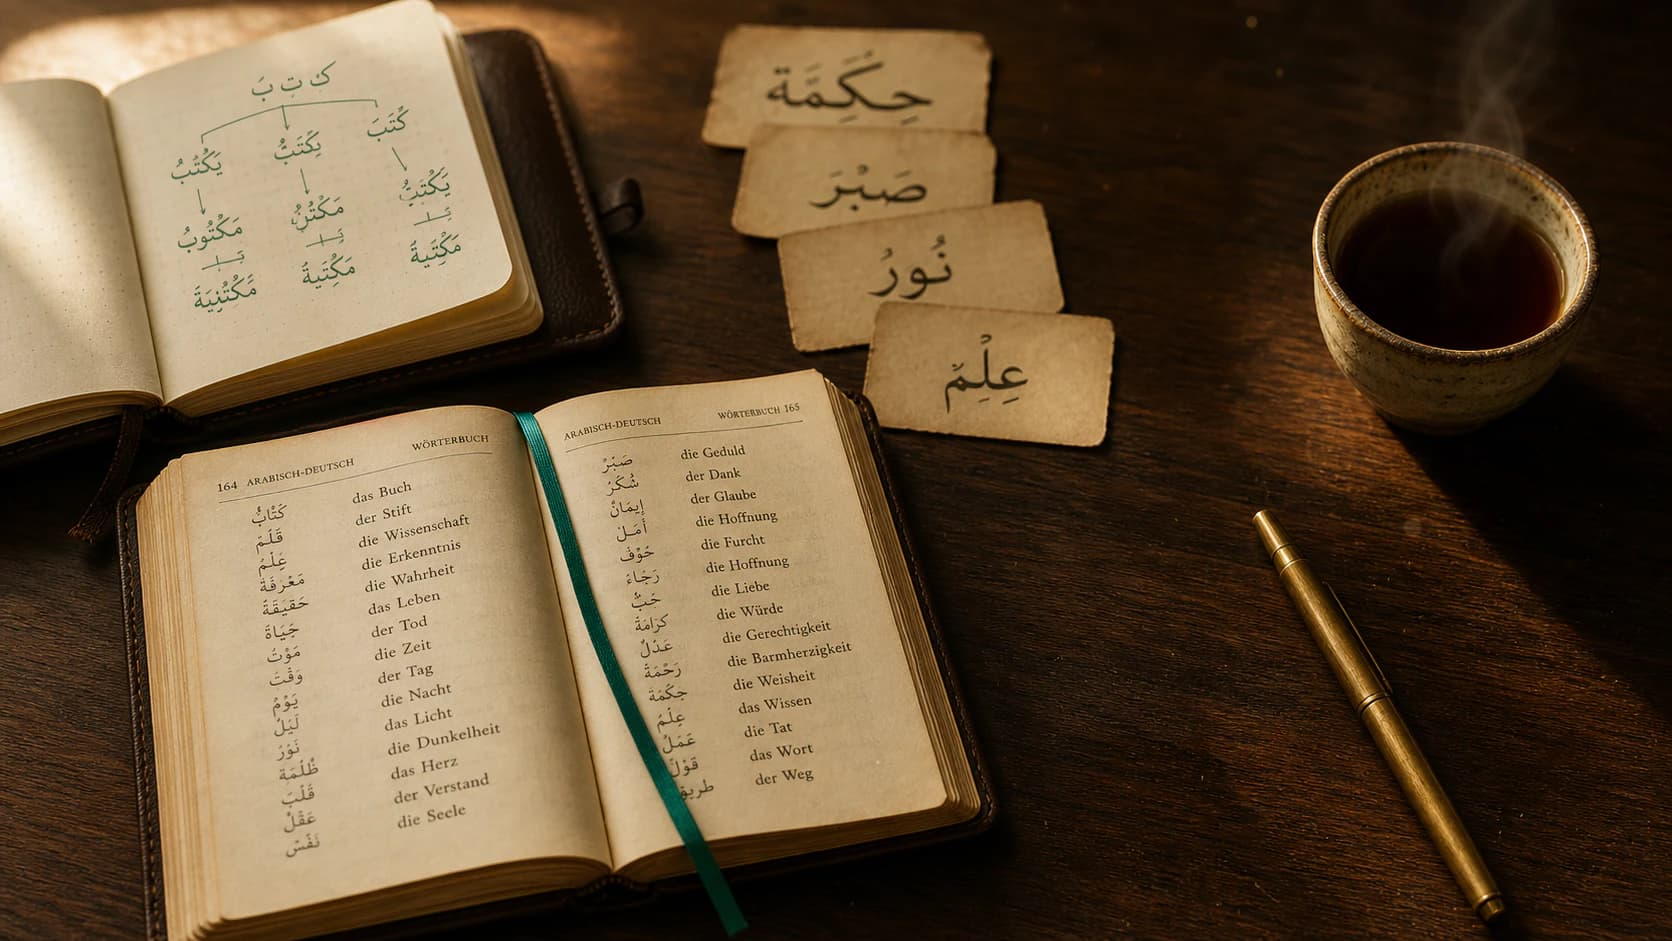 ك تِ بَ
كَتَبَ
يَكْتُبُ
مَكْتُوبُ
حِكَمَة
صَبْرَ
نُورُ
عِلْمٌ
164 ARABISCH-DEUTSCH WÖRTERBUCH
كَتَابٌ das Buch
قَلَمٌ der Stift
عِلْمُ die Wissenschaft
مَعْرَفَةُ die Erkenntnis
حَقِيقَةُ die Wahrheit
das Leben
مَوْتُ der Tod
وَقْتَ die Zeit
يَوْمُ der Tag
لَيْلُ die Nacht
نَوْرُ das Licht
ظُلْمَة die Dunkelheit
قَلْبَ das Herz
عَقْلُ der Verstand
نَفْسَ die Seele
ARABISCH-DEUTSCH WÖRTERBUCH 165
صَبْرُ die Geduld
شُكَرُ der Dank
إيمَانُ der Glaube
أَمَلْ die Hoffnung
die Furcht
رَجَاءَ die Hoffnung
حَبُّ die Liebe
كرَامَةُ die Würde
عَدْلٌ die Gerechtigkeit
رَحْمَةُ die Barmherzigkeit
die Weisheit
عِلْمُ das Wissen
عَمَلُ die Tat
قَوْلَ das Wort
طريق der Weg